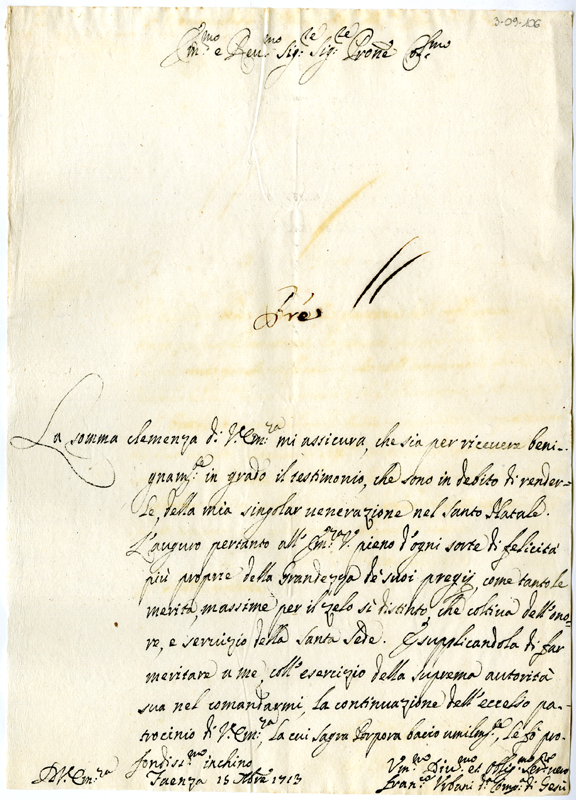 3-09-106
Em.mo e Rev.mo Sig.re Sig.re Prone
La somma clemenza di V. Em.za mi assicura, che sia per ricevere beni-
gnam.te in grado il testimonio, che sono in debito di render-
le, della mia singolar venerazione nel Santo Natale.
L'auguro pertanto all'Em.za V. pieno d'ogni sorte di felicità
più proprie della Grandezza de' suoi pregij, come tanto le
merita, massime per il zelo sì distinto, che coltiva dell'ono-
re, e servizio della Santa Sede. E supplicandola di far
meritare a me, coll'esercizio della suprema autorità
sua nel comandarmi, la continuazione dell'eccelso pa-
trocinio di V. Em.za, la cui Sagra Porpora bacio umilm.te, le fò pro-
fondiss.mo inchino
D. V. Em.za Faenza 15 1713
Um.mo Div.mo et Obblig.mo
Fran.co di Comp. di Gesù